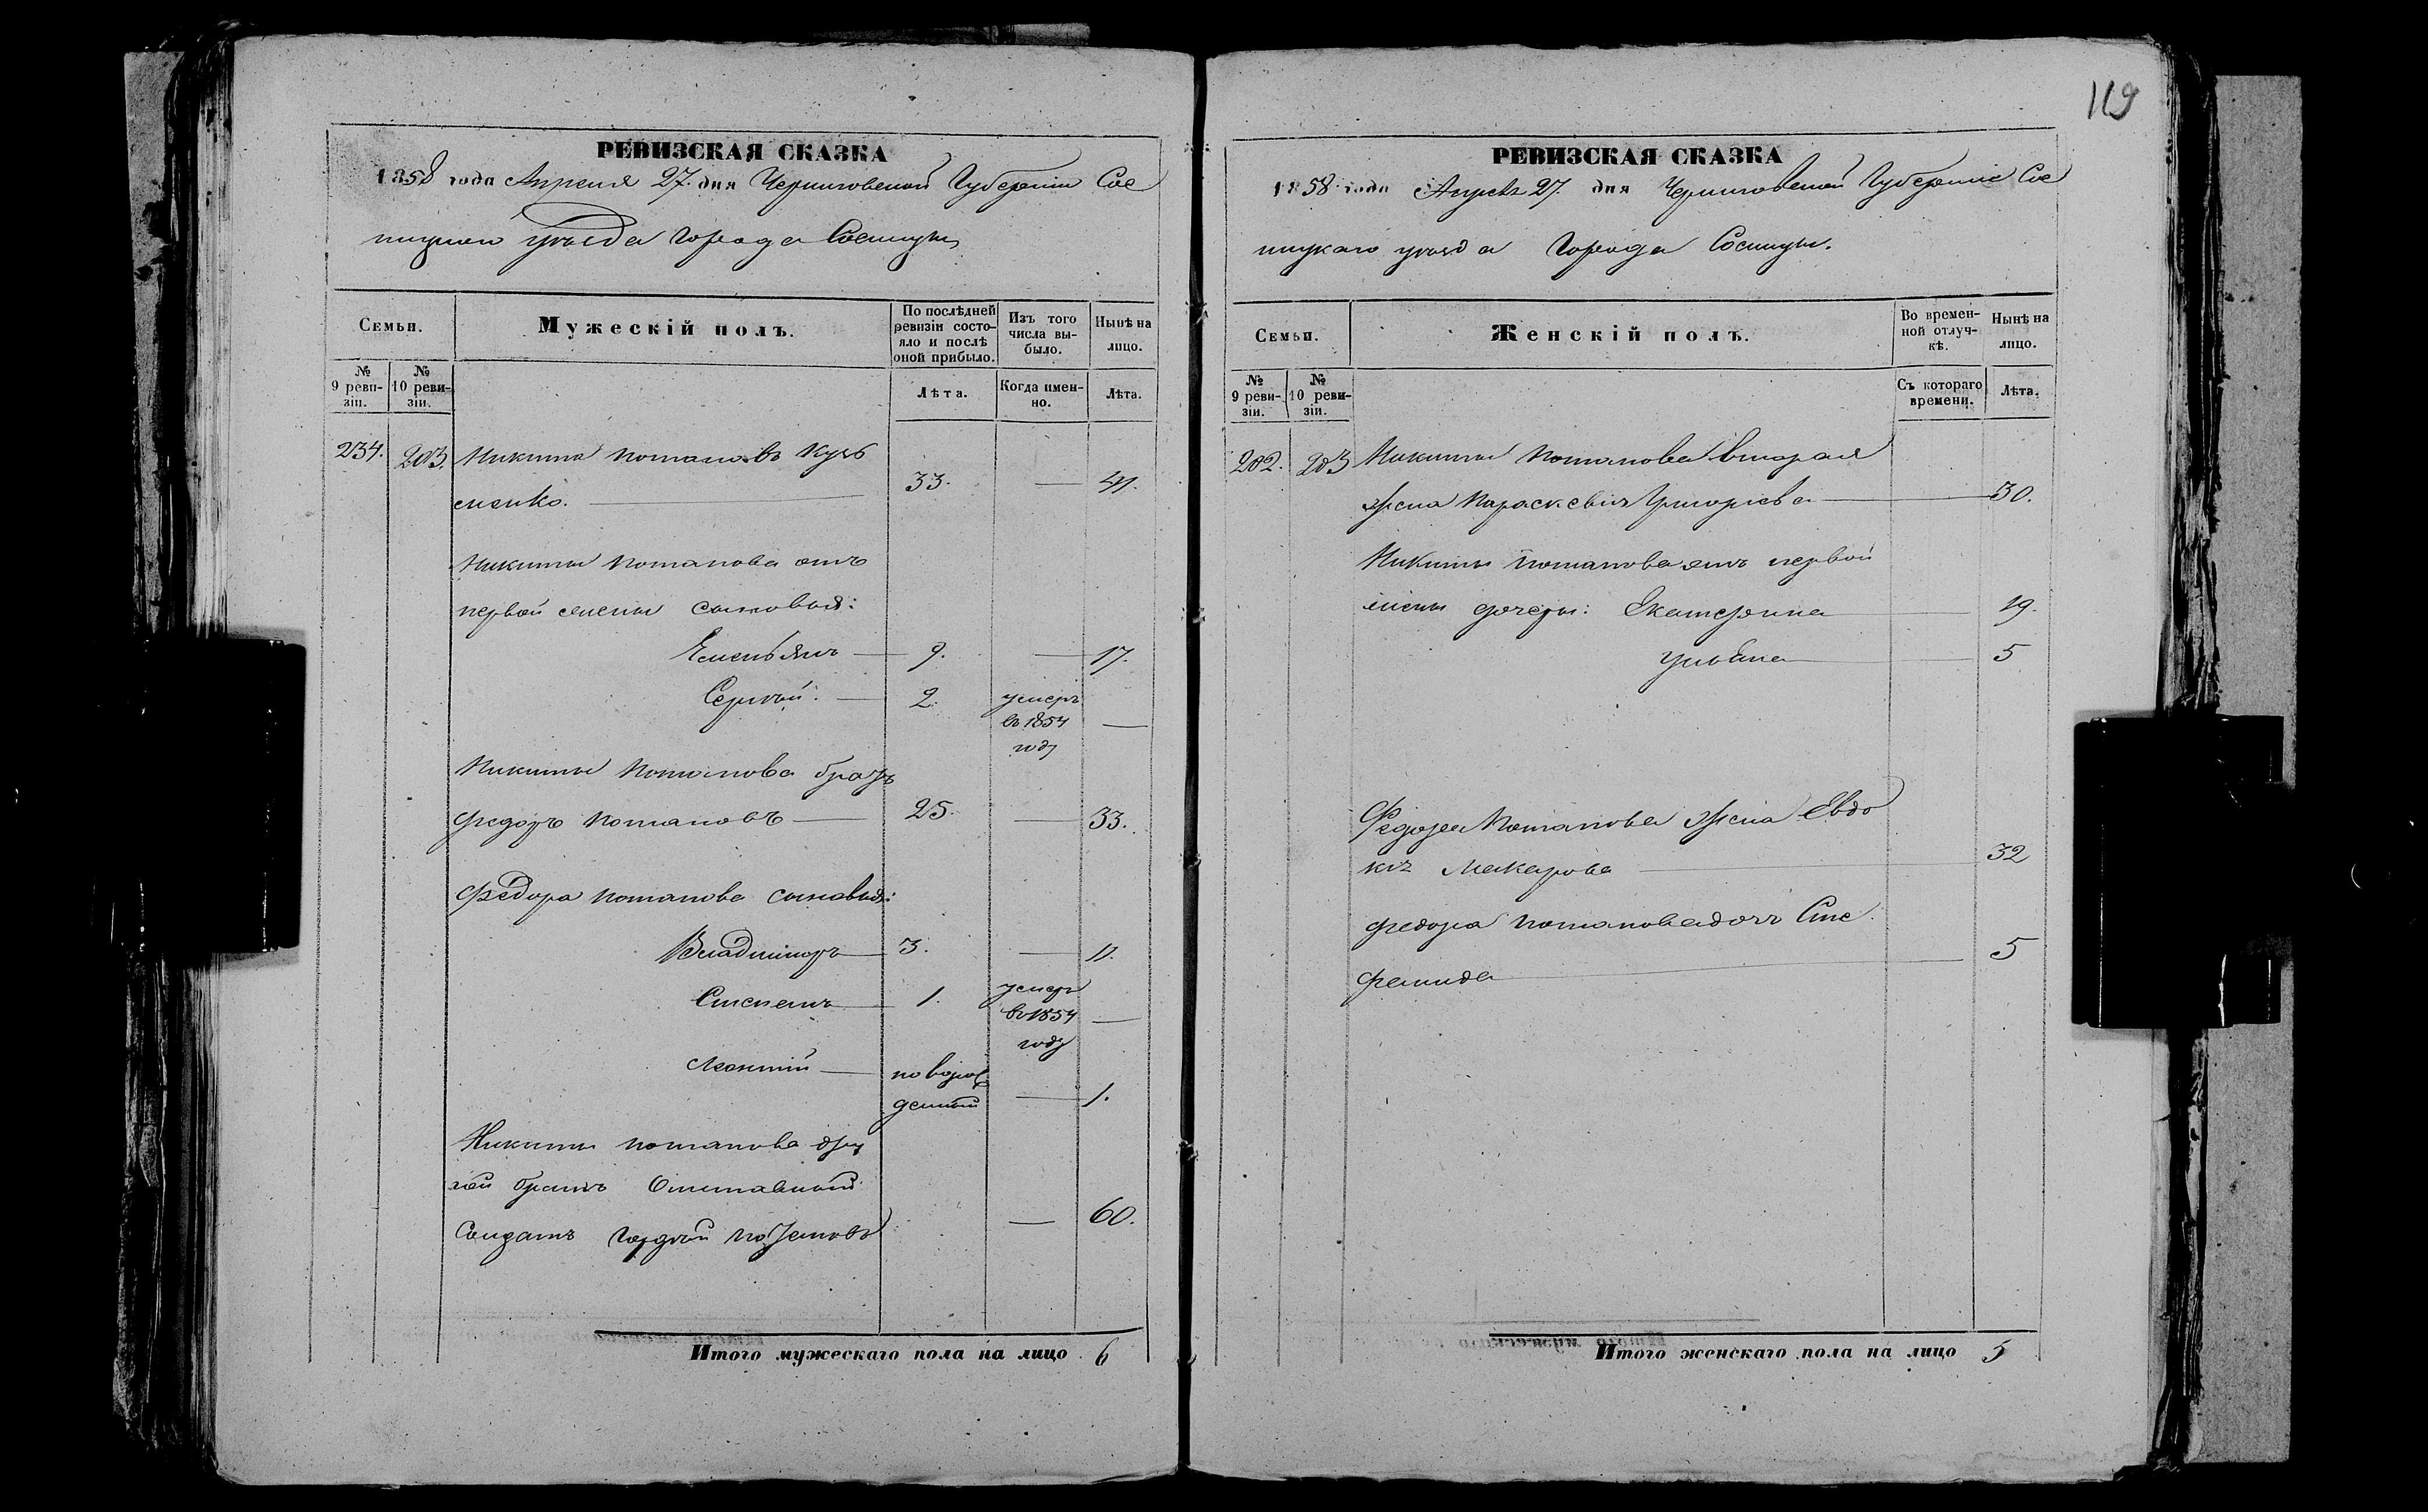 119
РЕВИЗСКАЯ СКАЗКА
1858 года Апреля 27. дня Черниговской Губерніи Сос
ницкого уѣзда города Сосницы
Семьи.
Мужескій полъ.
По послѣдней ревизіи состояло и послѣ оной прибыло.
Изъ того числа выбыло.
Нынѣ на лицо.
№ 9 ревизіи.
№ 10 ревизіи.
Лѣта.
Когда именно.
Лѣта.
234. 203. Никита Потаповъ Кузь
менко. 33. — 41.
Никиты Потапова отъ
первой жены сыновья:
Емельянъ — 9. — 17.
Сергѣй. — 2. умеръ
въ 1854 —
году
Никиты Потапова братъ
Федоръ Потаповъ — 25. — 33.
Федора Потапова сыновья:
Владиміръ — 3. — 11.
Степанъ — 1. умеръ
въ 1854 —
году
Леонтий — новорож
денный — 1.
Никиты Потапова дру
гой братъ Отставной
Солдатъ Гордѣй Потаповъ — 60.
Итого мужескаго пола на лицо 6
РЕВИЗСКАЯ СКАЗКА
1858 года Апреля 27. дня Черниговской Губерніи Сос
ницкаго уѣзда Города Сосницы.
Семьи.
Женскій полъ.
Во временной отлучкѣ.
Нынѣ на лицо.
№ 9 ревизіи.
№ 10 ревизіи.
Съ котораго времени.
Лѣта.
202. 203 Никиты Потапова вторая
жена Параскевія Григорьева — 30.
Никиты Потапова отъ первой
жены дочеры: Екатерина — 19.
Ульяна — 5
Федора Потапова жена Евдо
кія Макарова — 32
Федора Потапова дочь Сте
фанида — 5
Итого женскаго пола на лицо 5